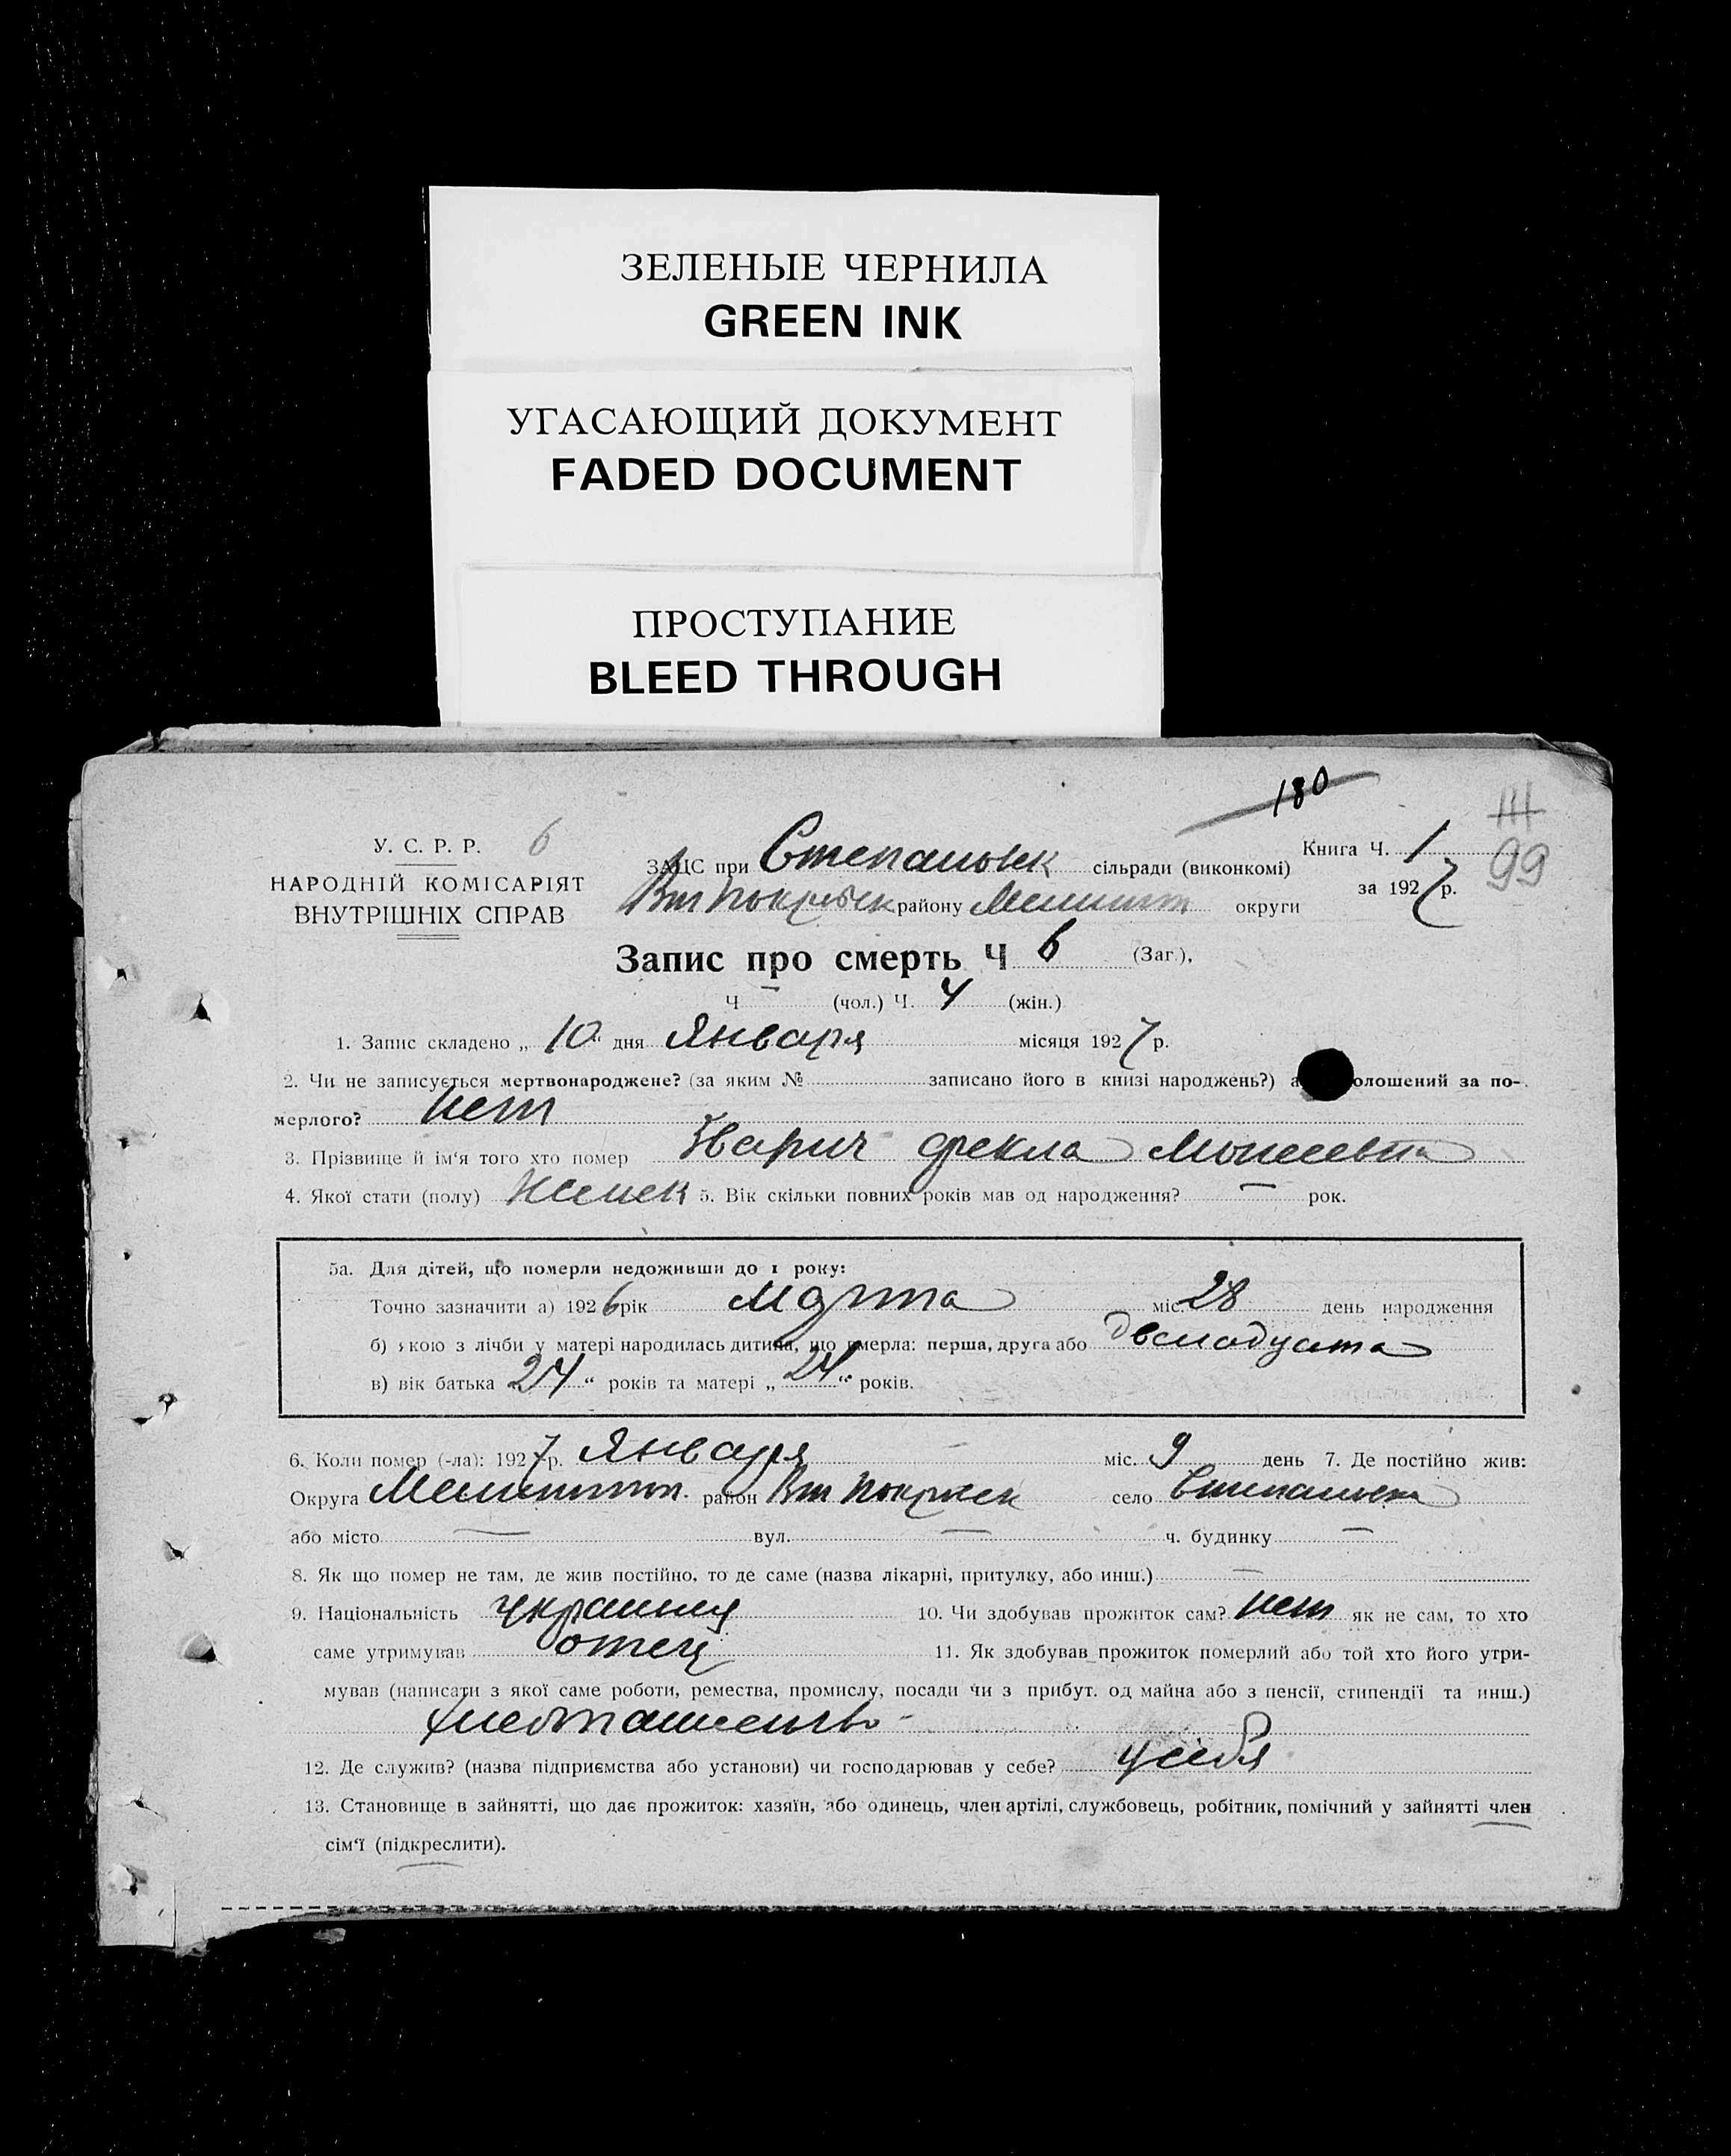 ЗЕЛЕНЫЕ ЧЕРНИЛА
GREEN INK
УГАСАЮЩИЙ ДОКУМЕНТ
FADED DOCUMENT
ПРОСТУПАНИЕ
BLEED THROUGH
180
У. С. Р. Р. 6
НАРОДНІЙ КОМІСАРІЯТ
ВНУТРІШНІХ СПРАВ
ЗАЦС при Степановск сільради (виконкомі)
району округи
Книга Ч. 1
за 1927 р.
99
Запис про смерть Ч 6 (Заг.),
Ч — (чол.) Ч. 4 (жін.)
1. Запис складено „ 10 “ дня Января місяця 1927 р.
2. Чи не записується мертвонароджене? (за яким № записано його в книзі народжень?) а олошений за по-
мерлого? нет
3. Прізвище й ім‘я того хто помер Зварич Фекла Моисеевна
4. Якої стати (полу) Женск 5. Вік скільки повних років мав од народження? — рок.
5а. Для дітей, що померли недоживши до 1 року:
Точно зазначити а) 1926 рік Марта міс. 28 день народження
б) якою з лічби у матері народилась дитина, що вмерла: перша, друга або
в) вік батька 24 “ років та матері „ 24 “ років.
6. Коли помер (-ла): 1927 р. Января міс. 9 день 7. Де постійно жив:
Округа район село Степановка
або місто — вул. — ч. будинку —
8. Як що помер не там, де жив постійно, то де саме (назва лікарні, притулку, або инш.) —
9. Національність 10. Чи здобував прожиток сам? нет як не сам, то хто
саме утримував отец 11. Як здобував прожиток померлий або той хто його утри-
мував (написати з якої саме роботи, ремества, промислу, посади чи з прибут. од майна або з пенсії, стипендії та инш.)
хлебопашенство
12. Де служив? (назва підприємства або установи) чи господарював у себе? у себя
13. Становище в зайнятті, що дає прожиток: хазяїн, або одинець, член артілі, службовець, робітник, помічний у зайнятті член
сім‘ї (підкреслити).